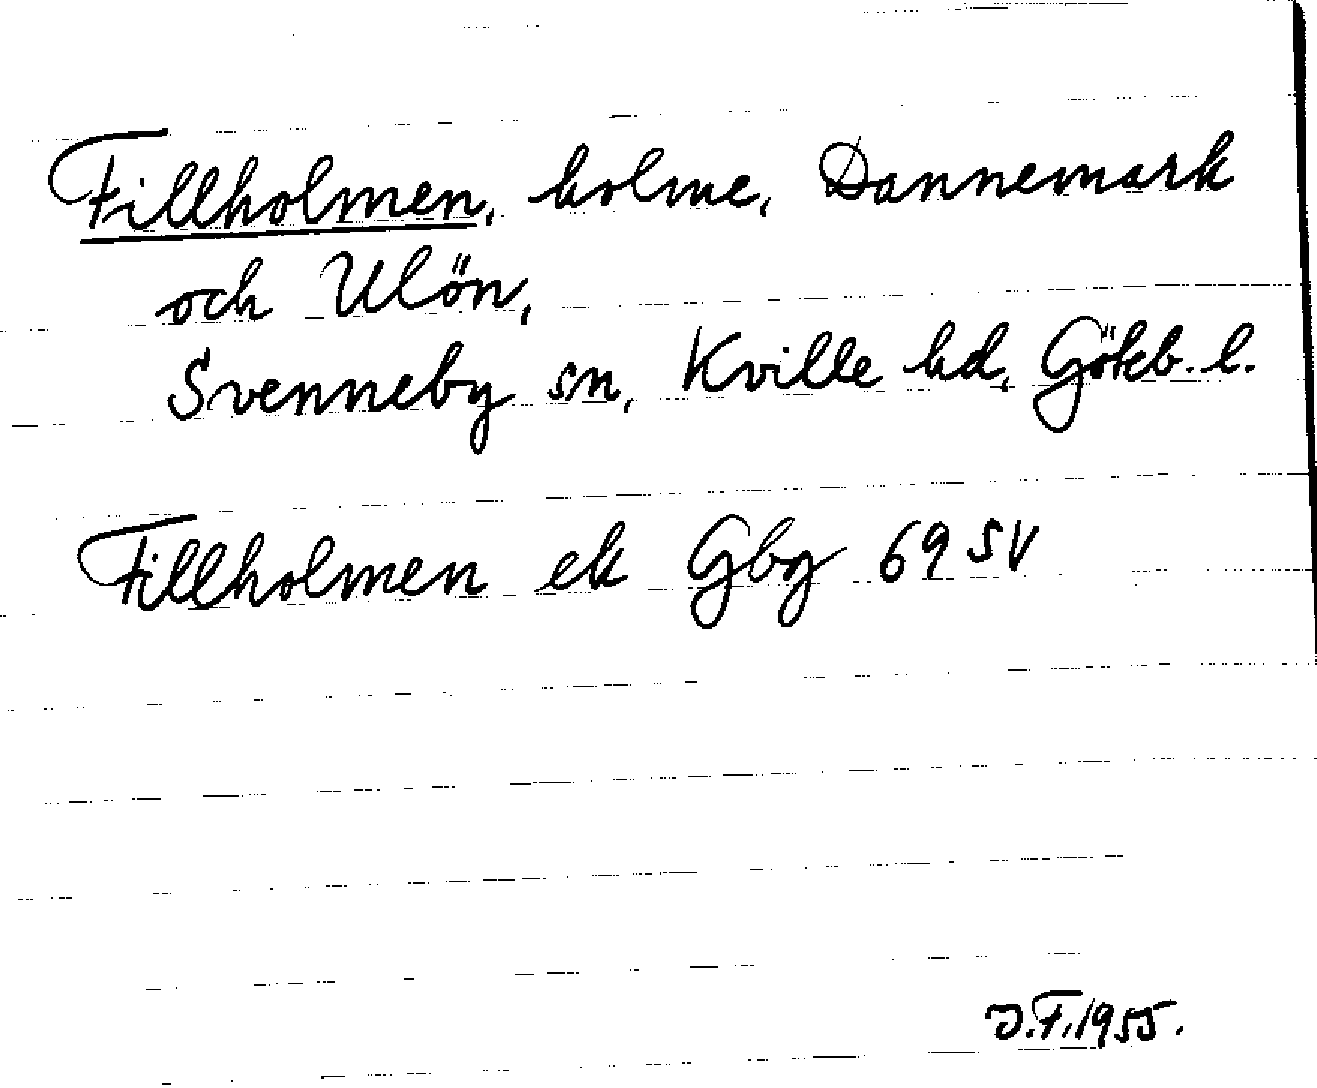 Fillholmen, holme, Dannemark
och Ulön,
Svenneby sn, Kville hd, Göteb. l.
Fillholmen ek Gbg 69 SV
J.F. 1955.